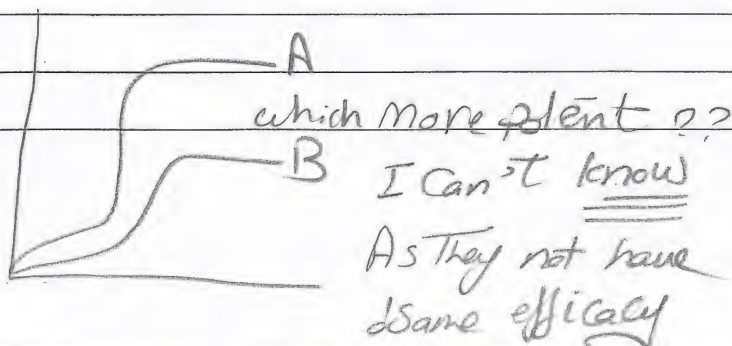 A
which more potent ??
B
I Can't know
As They not have
Same efficacy